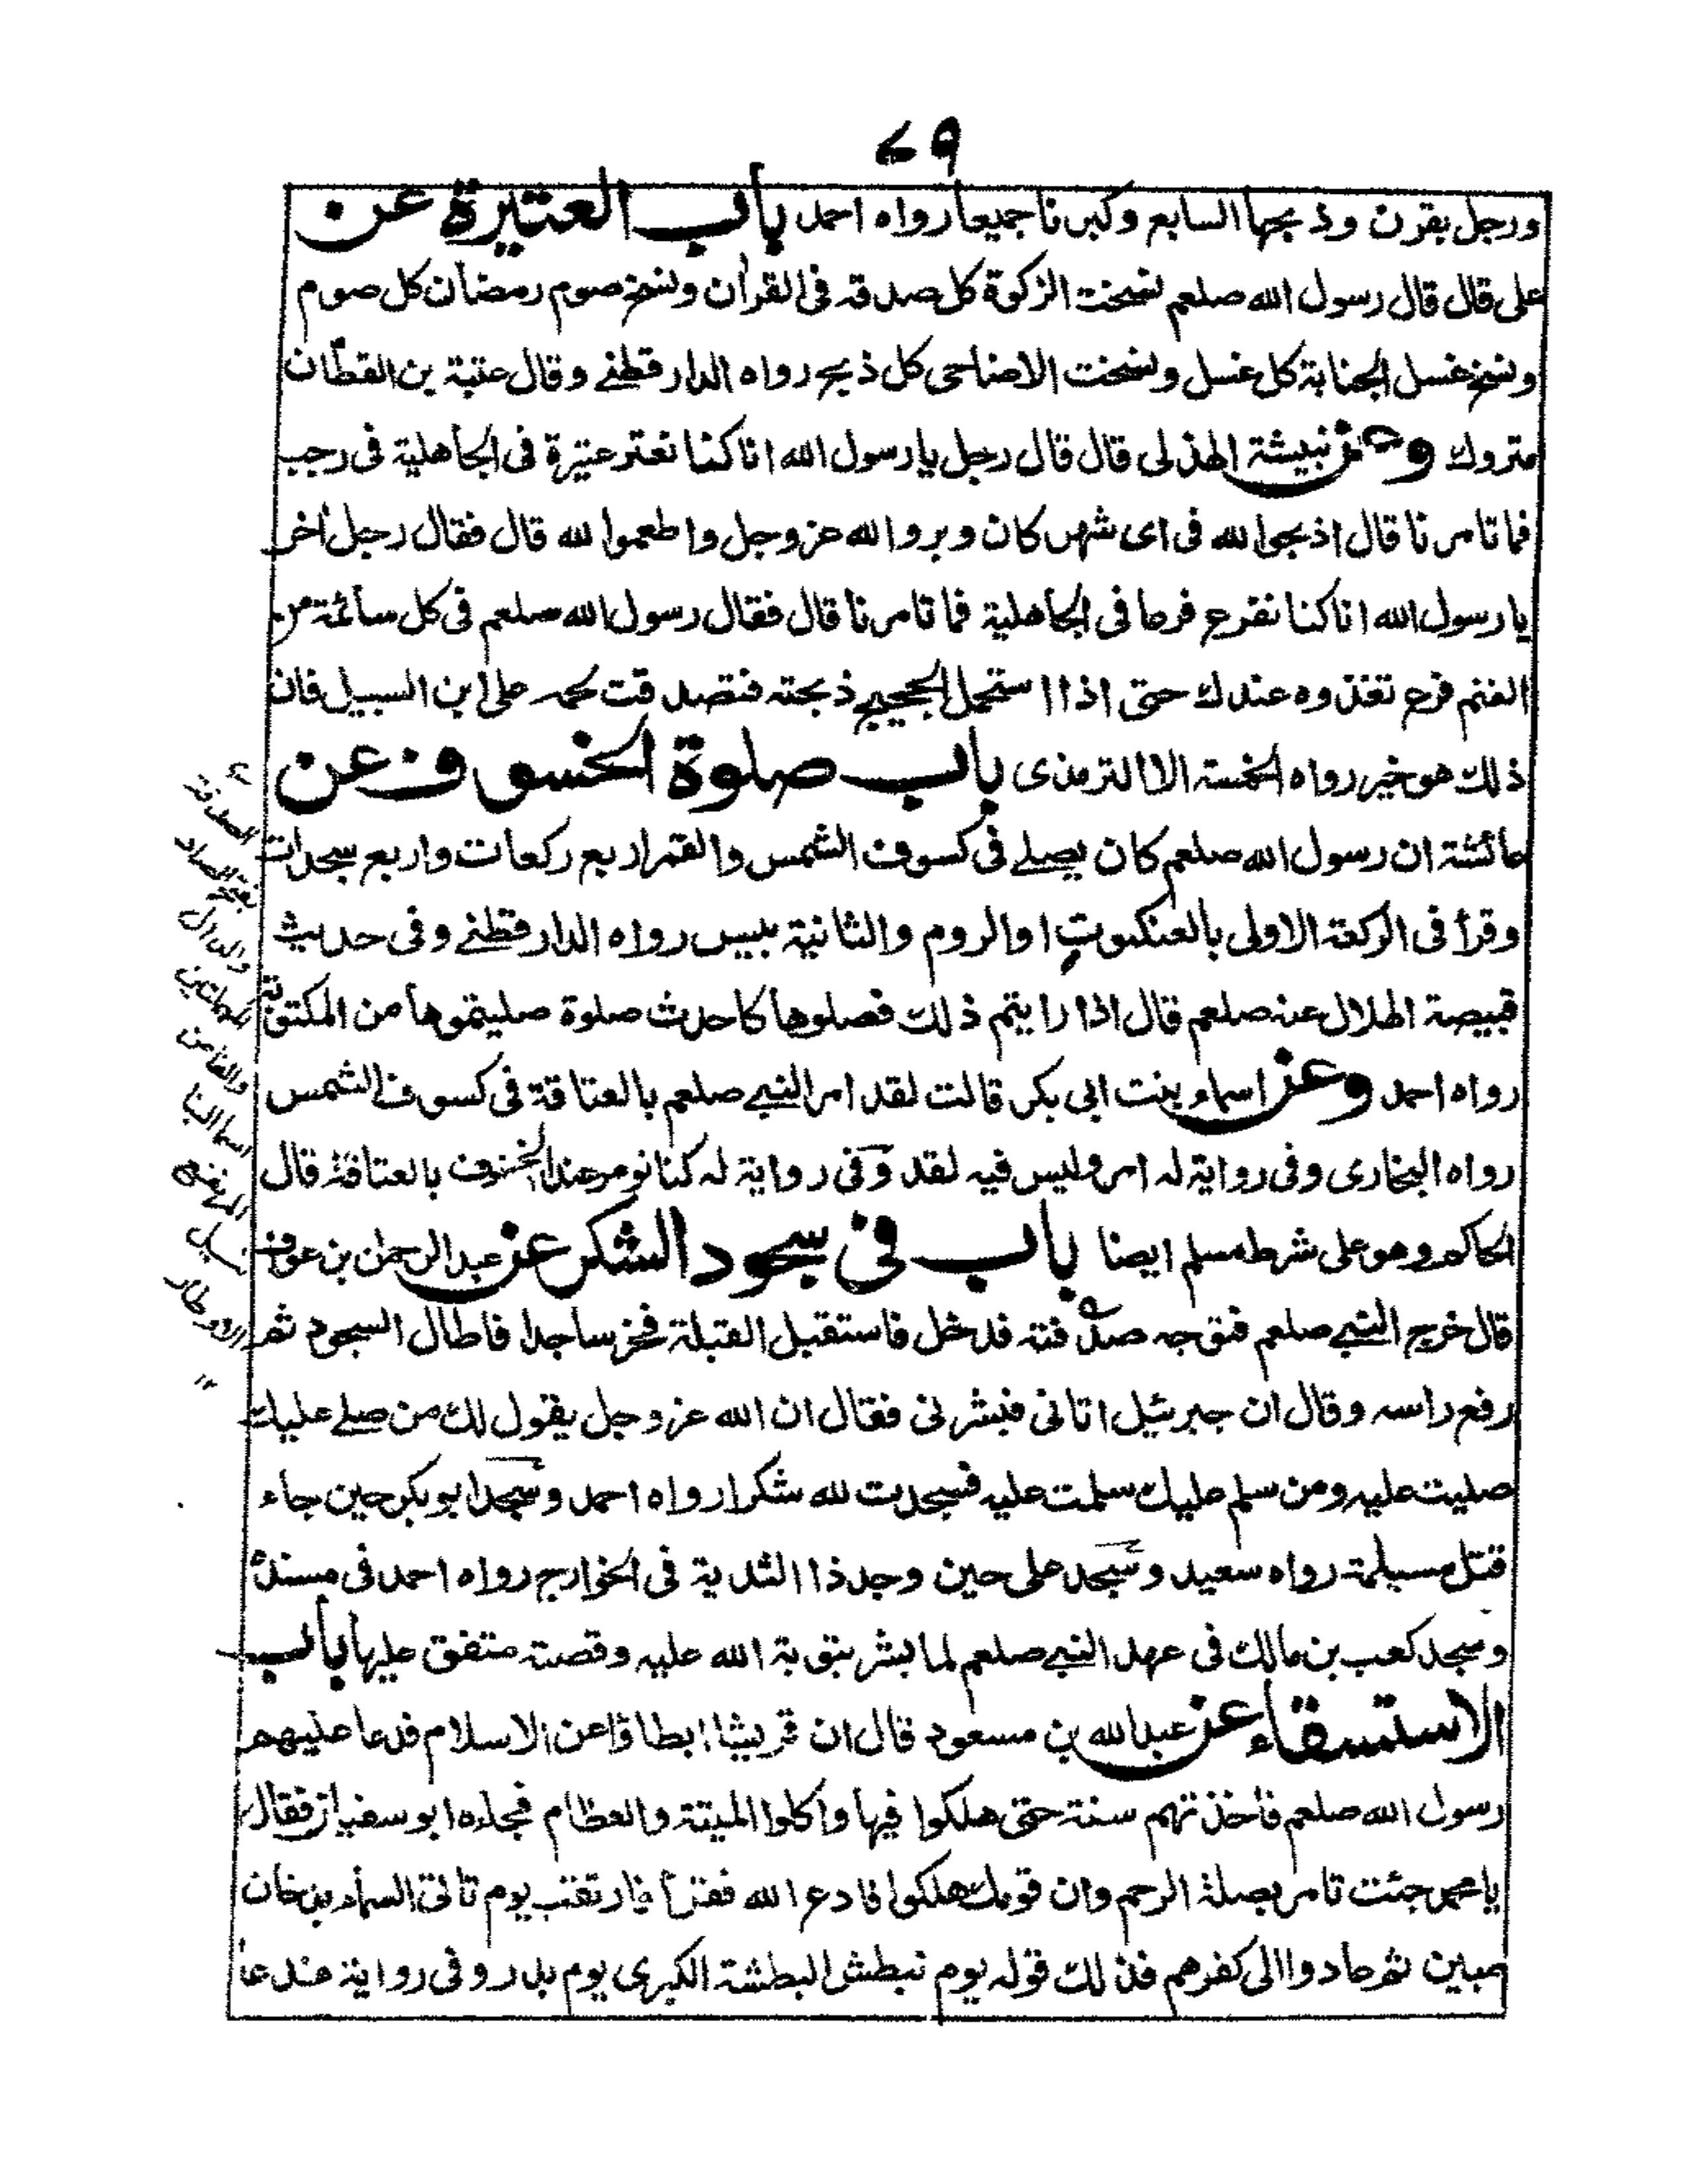 ٧٩
ورجل بقرن وذبحها السابع وكبرنا جميعا رواه احمد باب العتيرة عن
على قال قال رسول الله صلعم نسخت الزكوة كل صدقه فى القرأن ونسخ صوم رمضان كل صوم
ونسخ غسل الجنابة كل غسل ونسخت الاضاحى كل ذبح رواه الدارقطنے وقال عتبة بن القطان
متروك وعن نبيشة الهذلى قال قال رجل يا رسول الله انا كنا نعتر عتيرة فى الجاهلية فى رجب
فما تامرنا قال اذبحوا لله فى اى شهر كان وبروا لله عز وجل واطعموا لله قال فقال رجل أخر
يا رسول الله انا كنا نفرع فرعا فى الجاهلية فما تامرنا قال فقال رسول الله صلعم فى كل سائمة من
الغنم فرع تغذوه عندك حتى اذا استحمل للحجيج ذبحته فتصدقت لحمه على ابن السبيل فان
ذلك هو خير رواه الخمسة الا الترمذى باب صلوة الخسوف عن
عائشة ان رسول الله صلعم كان يصلے فى كسوف الشمس والقمر اربع ركعات واربع سجدات
وقرأ فى الركعة الاولى بالعنكبوت او الروم والثانية بيس رواه الدارقطنے وفى حديث
قبيصة الهلال عنه صلعم قال اذا رايتم ذلك فصلوها كاحدث صلوة صليتموها من المكتوبة
رواه احمد وعن اسماء بنت ابى بكر قالت لقد امر النبے صلعم بالعتاقة فى كسوف الشمس
رواه البخارى وفى رواية له امر وليس فيه لقد وفى رواية له كنا نومر عند الخسوف بالعتاقة قال
الحاكم وهو على شرط مسلم ايضا باب فى سجود الشكر عن عبد الرحمن بن عوف
قال خرج النبے صلعم فتوجه صدفته فدخل فاستقبل القبلة فخر ساجدا فاطال السجود ثم
رفع راسه وقال ان جبرئيل اتانى فبشرنى فقال ان الله عز وجل يقول لك من صلے عليك
صليت عليه ومن سلم عليك سلمت عليه فسجدت لله شكرا رواه احمد وسجد ابو بكر حين جاء
قتل مسيلمة رواه سعيد وسجد على حين وجد ذا الثدية فى الخوارج رواه احمد فى مسنده
وسجد كعب بن مالك فى عهد النبے صلعم لما بشر بتوبة الله عليه وقصته متفق عليها باب
الاستسقاء عن عبد الله بن مسعود قال ان قريشا ابطاؤا عن الاسلام فدعا عليهم
رسول الله صلعم فاخذتهم سنة حتى هلكوا فيها واكلوا الميتة والعظام فجاءه ابو سفيان فقال
يا محمد جئت تامر بصلة الرحم وان قومك هلكوا فادع الله فقرأ فارتقب يوم تاتى السماء بدخان
مبين ثم عادوا الى كفرهم فذلك قوله يوم نبطش البطشة الكبرى يوم بدر وفى رواية فدعا
الصدفة
بفتح الصاد
والدال
المهملتين
والفا من
اسما البنا
المرتفع
نيل
الاوطار
١٢